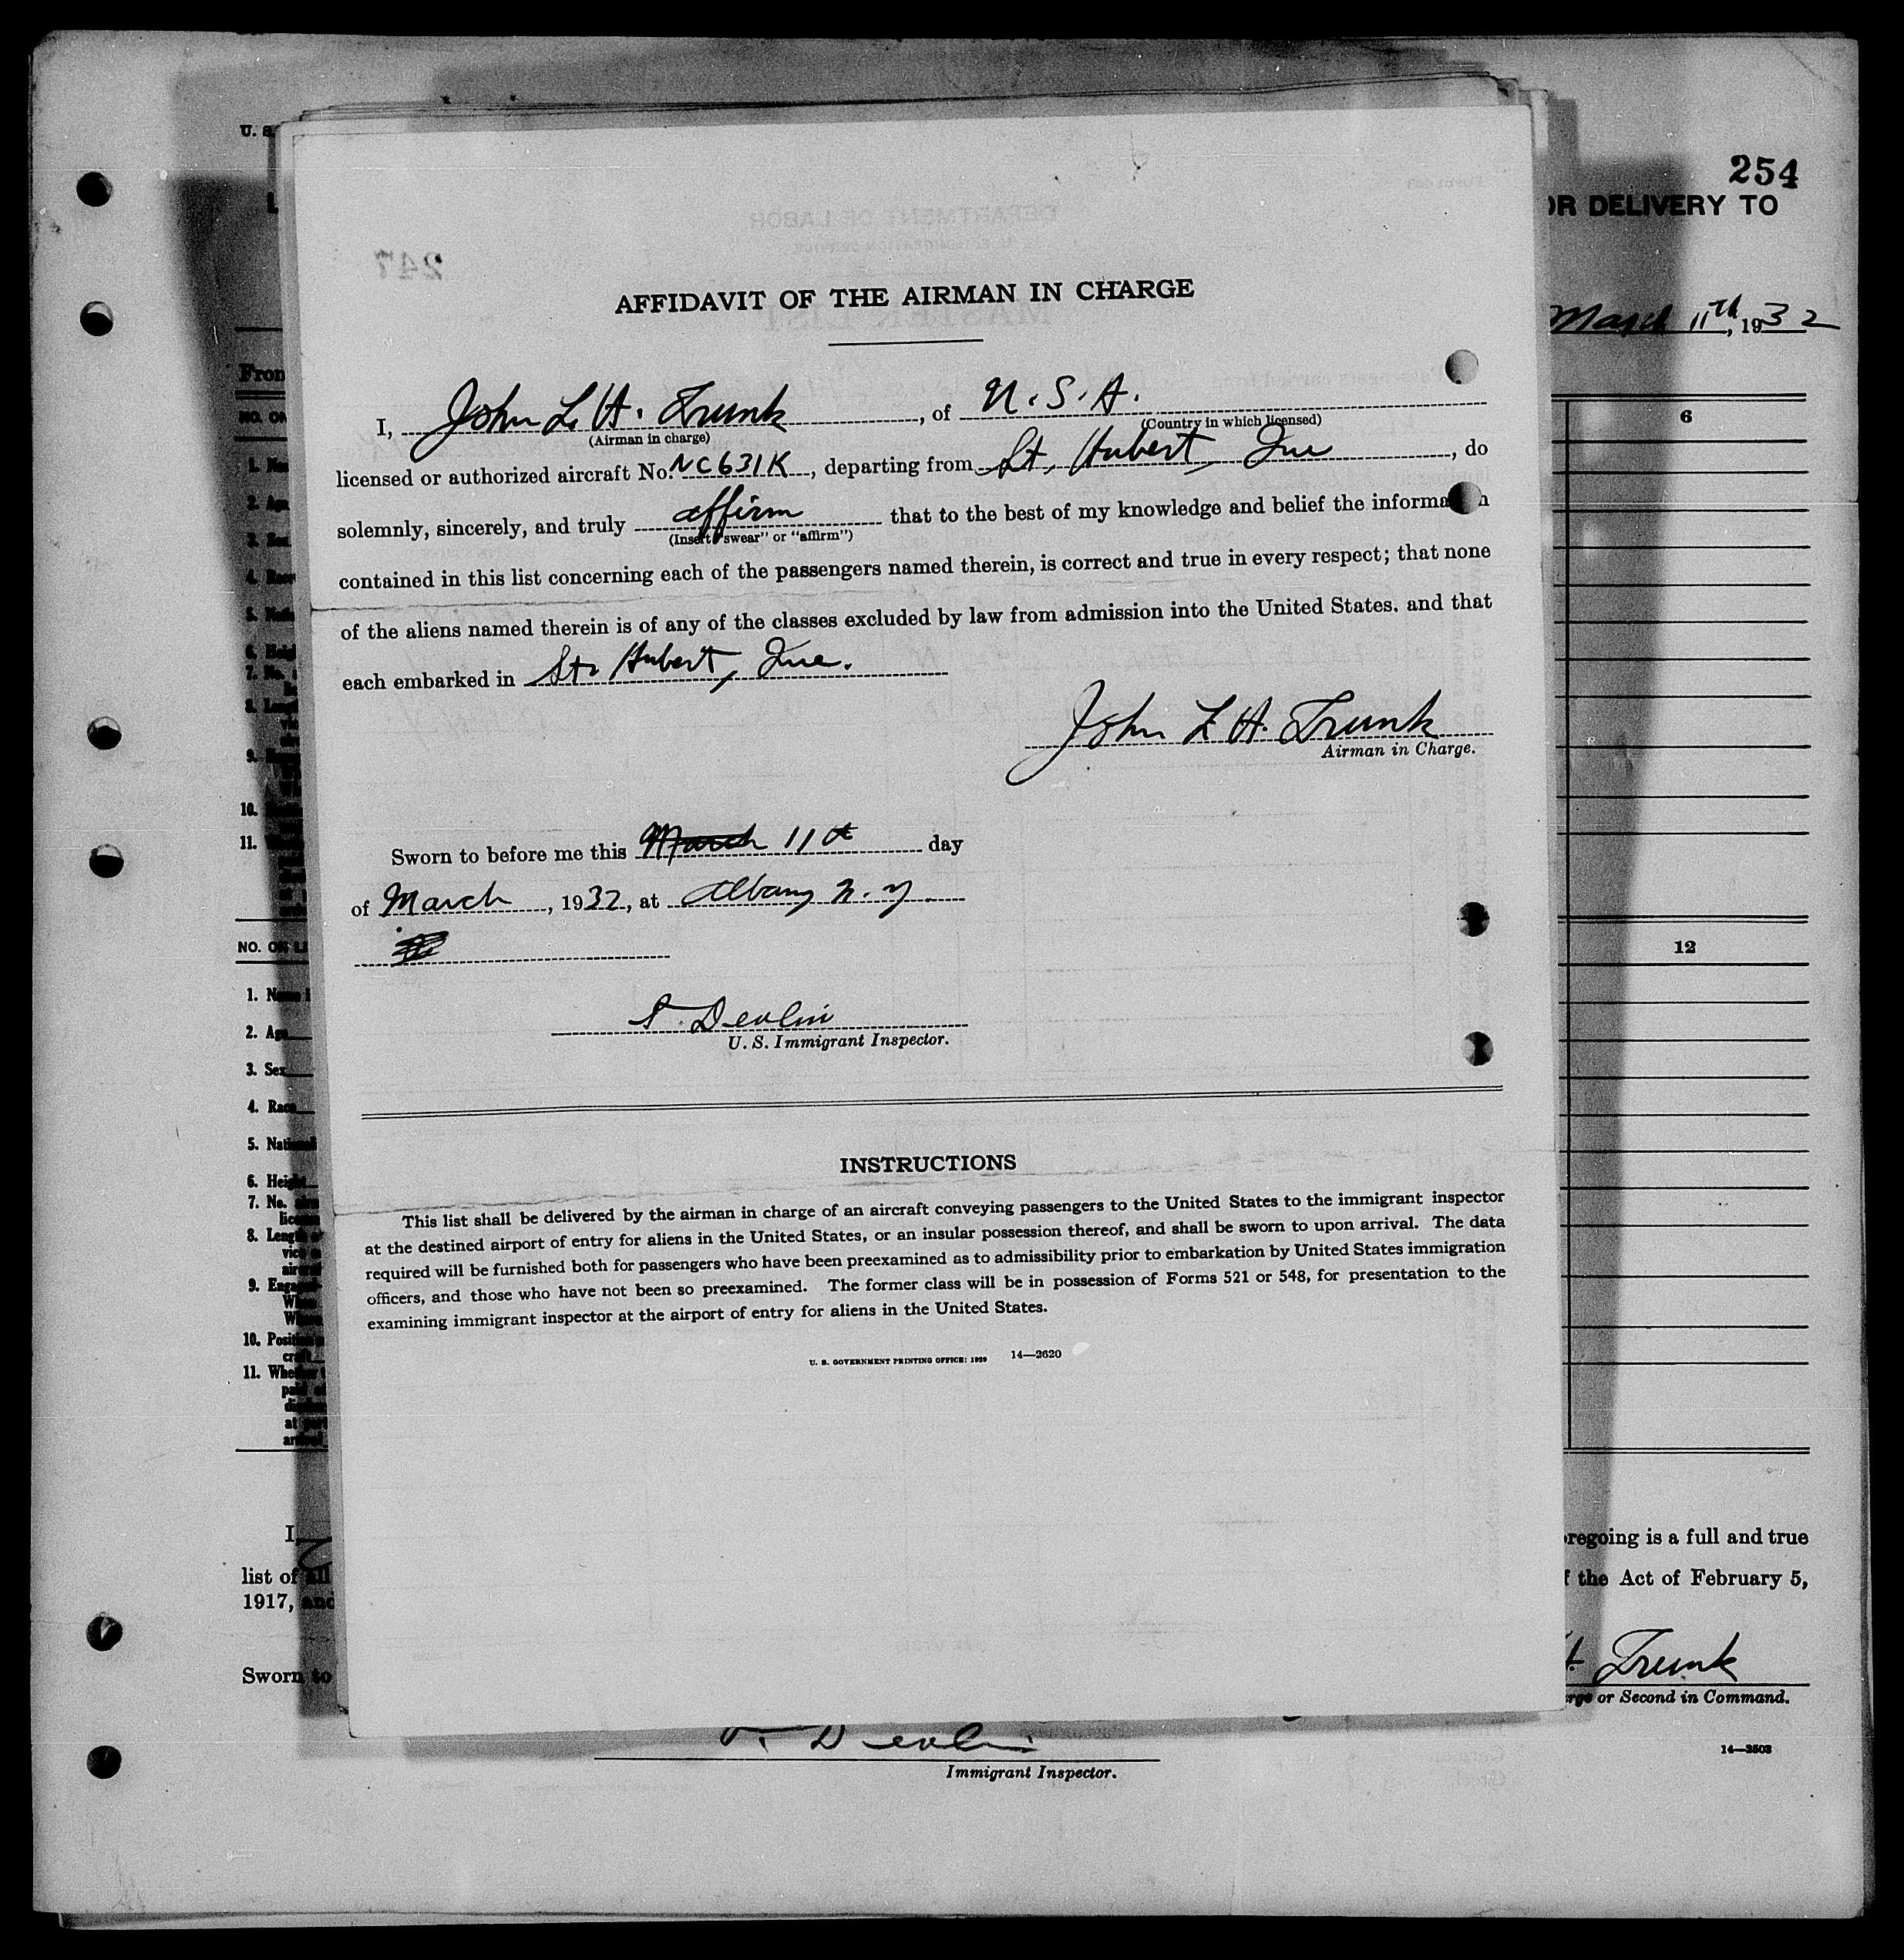 254
U. S.
OR DELIVERY TO
March 11th, 1932
AFFIDAVIT OF THE AIRMAN IN CHARGE
I, John L. H. Trunk, of U. S. A.
(Airman in charge) (Country in which licensed)
licensed or authorized aircraft No. NC631K, departing from St. Hubert, Que, do
solemnly, sincerely, and truly affirm that to the best of my knowledge and belief the information
(Insert "swear" or "affirm")
contained in this list concerning each of the passengers named therein, is correct and true in every respect; that none
of the aliens named therein is of any of the classes excluded by law from admission into the United States. and that
each embarked in St. Hubert, Que.
John L H. Trunk
Airman in Charge.
Sworn to before me this March 11th day
of March, 1932, at Albany N. Y.
T. Devlin
U. S. Immigrant Inspector.
INSTRUCTIONS
This list shall be delivered by the airman in charge of an aircraft conveying passengers to the United States to the immigrant inspector
at the destined airport of entry for aliens in the United States, or an insular possession thereof, and shall be sworn to upon arrival. The data
required will be furnished both for passengers who have been preexamined as to admissibility prior to embarkation by United States immigration
officers, and those who have not been so preexamined. The former class will be in possession of Forms 521 or 548, for presentation to the
examining immigrant inspector at the airport of entry for aliens in the United States.
U. S. GOVERNMENT PRINTING OFFICE: 1929 14—2620
From
NO. ON
6
1.
2. Age
3.
4. Race
5.
6.
7. No.
8.
9.
10.
11.
NO. ON LI
12
1. Name
2. Age
3. Sex
4. Race
5. Nationali
6. Height
7. No.
8. Length
9. Engag
10. Positi
11. Whe
I,
regoing is a full and true
list of all
f the Act of February 5,
1917, and
Sworn to
H. Trunk
rge or Second in Command.
T. Devlin
Immigrant Inspector.
14—2503